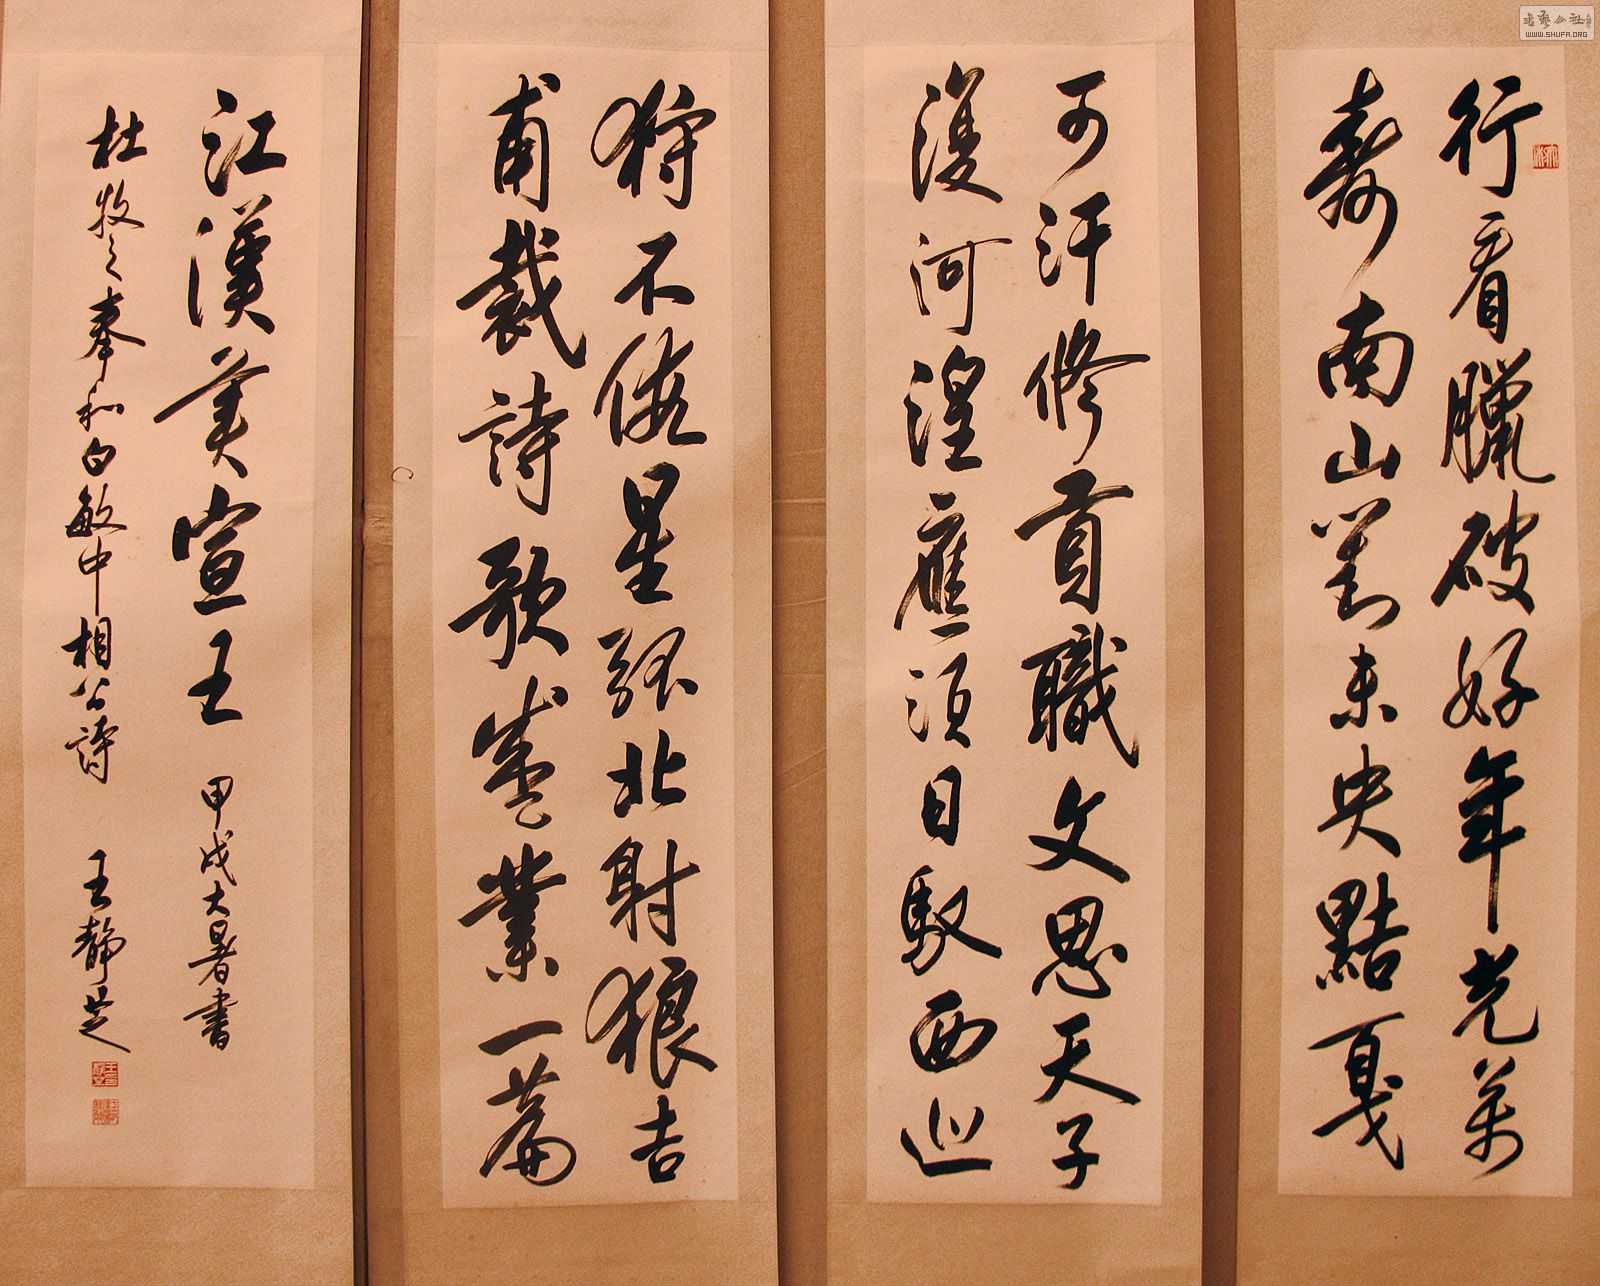 行看臘破好年光萬
壽南山對未央黠戛
可汗修貢職文思天子
復河湟應須日馭西巡
狩不假星弧北射狼吉
甫裁詩歌盛業一篇
江漢美宣王 甲戌大暑書
杜牧之奉和白敏中相公詩 王靜芝
書藝公社
WWW.SHUFA.ORG